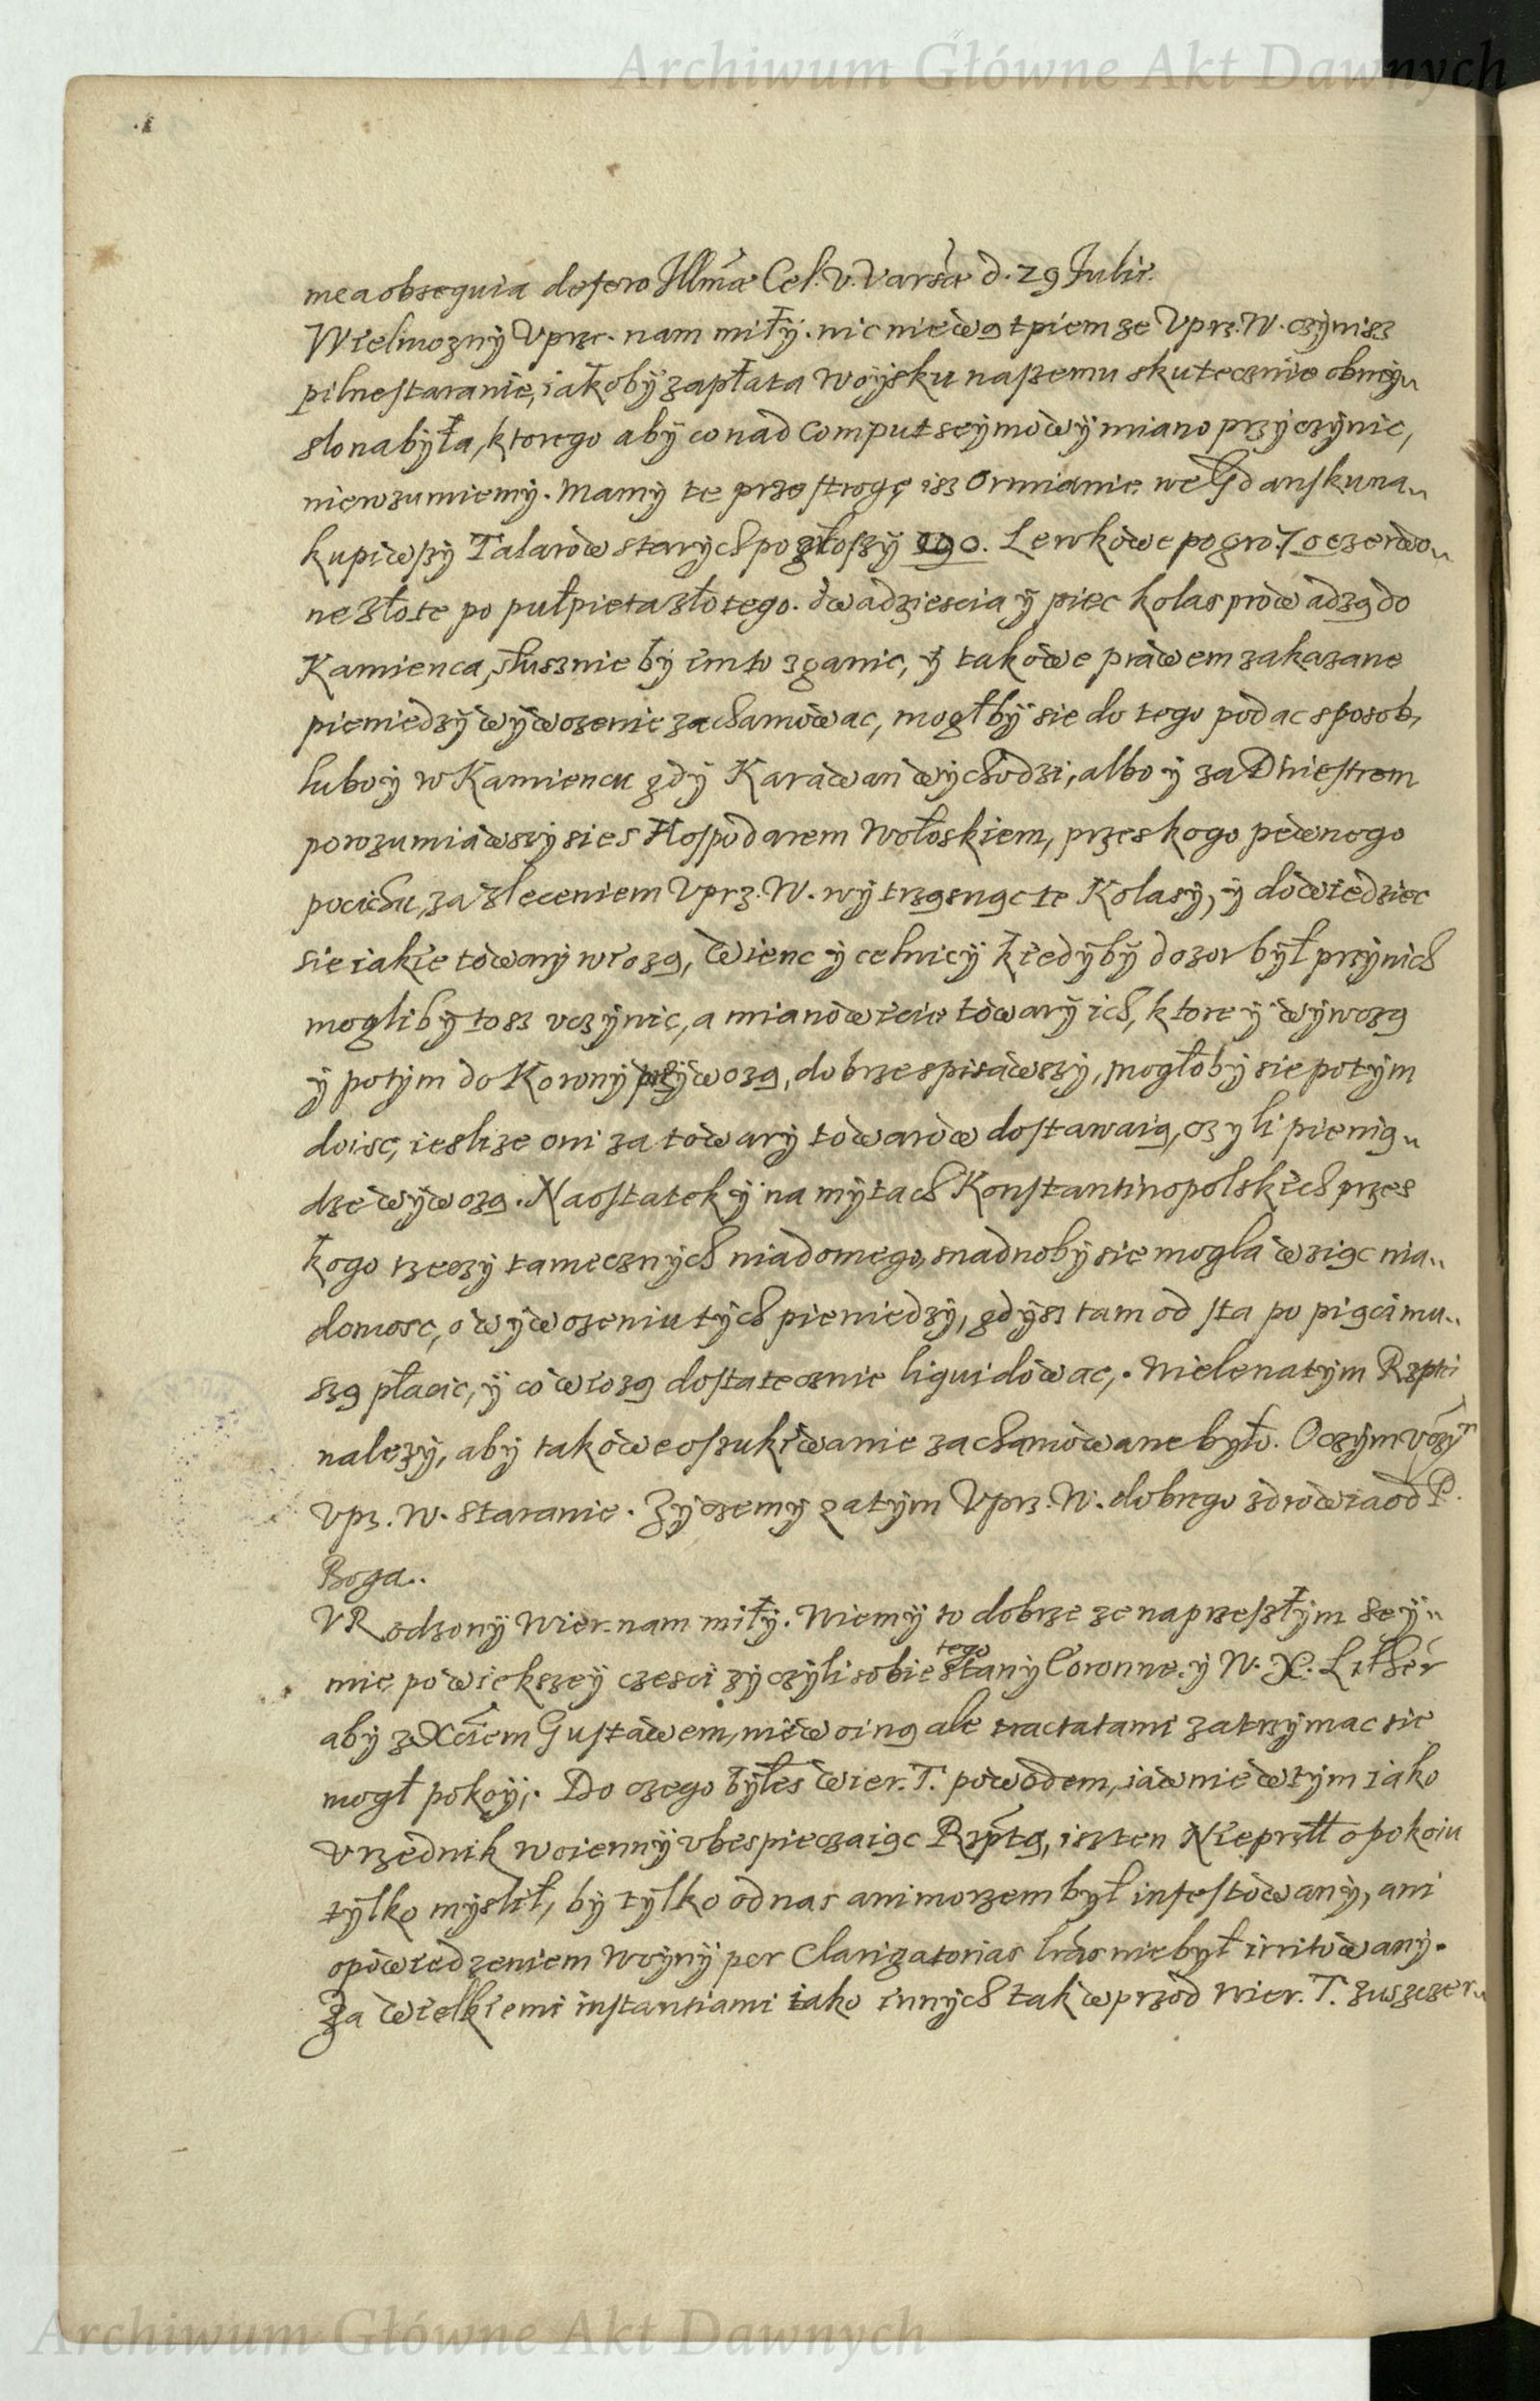 Archiwum Główne Akt Dawnych
mea obsequia defero Illmæ Cel. V. Varsæ d. 29 Julii.
Wielmozny Vprz. nam miły. nic niewątpiem ze Vprz. W. czynisz
pilne staranie, iakoby zapłata woysku naszemu skutecznie obmy„
slona była, ktorego aby co nad comput seymowy miano przyczynic,
nierozumiemy. Mamy te przestrogę isz Ormianie we Gdansku na„
kupiwszy Talarow starych po groszy 90. Lewkowe po gro. 70 czerwo„
ne złote po pułpieta złotego. dwadziescia y piec kolas prowadzą do
Kamienca, słusznie by im to zganic, y takowe prawem zakazane
pieniedzy wywozenie zachamowac, mogłby sie do tego podac sposob,
lubo y w Kamiencu gdy Karawan wychodzi, albo y za Dniestrem
porozumiawszy sie s Hospodarem Wołoskiem, przes kogo pewnego
pocichu, za zleceniem Vprz. W. wytrząsnąc te Kolasy, y dowiedziec
sie iakie towary wiozą, Wienc y celnicy kiedyby dozor był przy nich
mogliby tosz vczynic, a mianowicie towary ich, ktore y wywozą
y potym do Korony przywozą, dobrze spisawszy, mogłoby sie potym
doisc, ieslize oni za towary towarow dostawaią, czyli pienią„
dze wywozą. Naostatek y na mytach Konstantinopolskich przes
kogo rzeczy tamecznych wiadomego, snadnoby sie mogla wziąc wia„
domosc, o wywozeniu tych pieniedzy, gdysz tam od sta po piąci mu„
szą płacic, y co wiozą dostatecznie liquidowac,. Wiele na tym Rzptei
nalezy, aby takowe oszukiwanie zachamowane było. O czym vczyn
Vpz. W. staranie. Zyczemy zatym Vprz. W. dobrego zdrowia od P.
Boga..
VRodzony Wier. nam miły. Wiemy to dobrze ze na przeszłym Sey„
mie powiekszey czesci zyczyli sobie tego stany Coronne, y W. X. Litheˊ
aby z Xciem Gustawem, nie woiną ale tractatami zatrzymac sie
mogł pokoy,. Do czego byłes Wier. T. powodem, iawnie w tym iako
vrzednik woienny vbespieczaiąc Rzptą, isz ten Nieprzll o pokoiu
tylko myslił, by tylko od nas ani morzem był infestowany, ani
opowiedzeniem woyny per clarigatorias lras niebył irritowany.
Za wielkiemi instantiami iako innych tak wprzod Wier. T. zuszczer„
Archiwum Główne Akt Dawnych